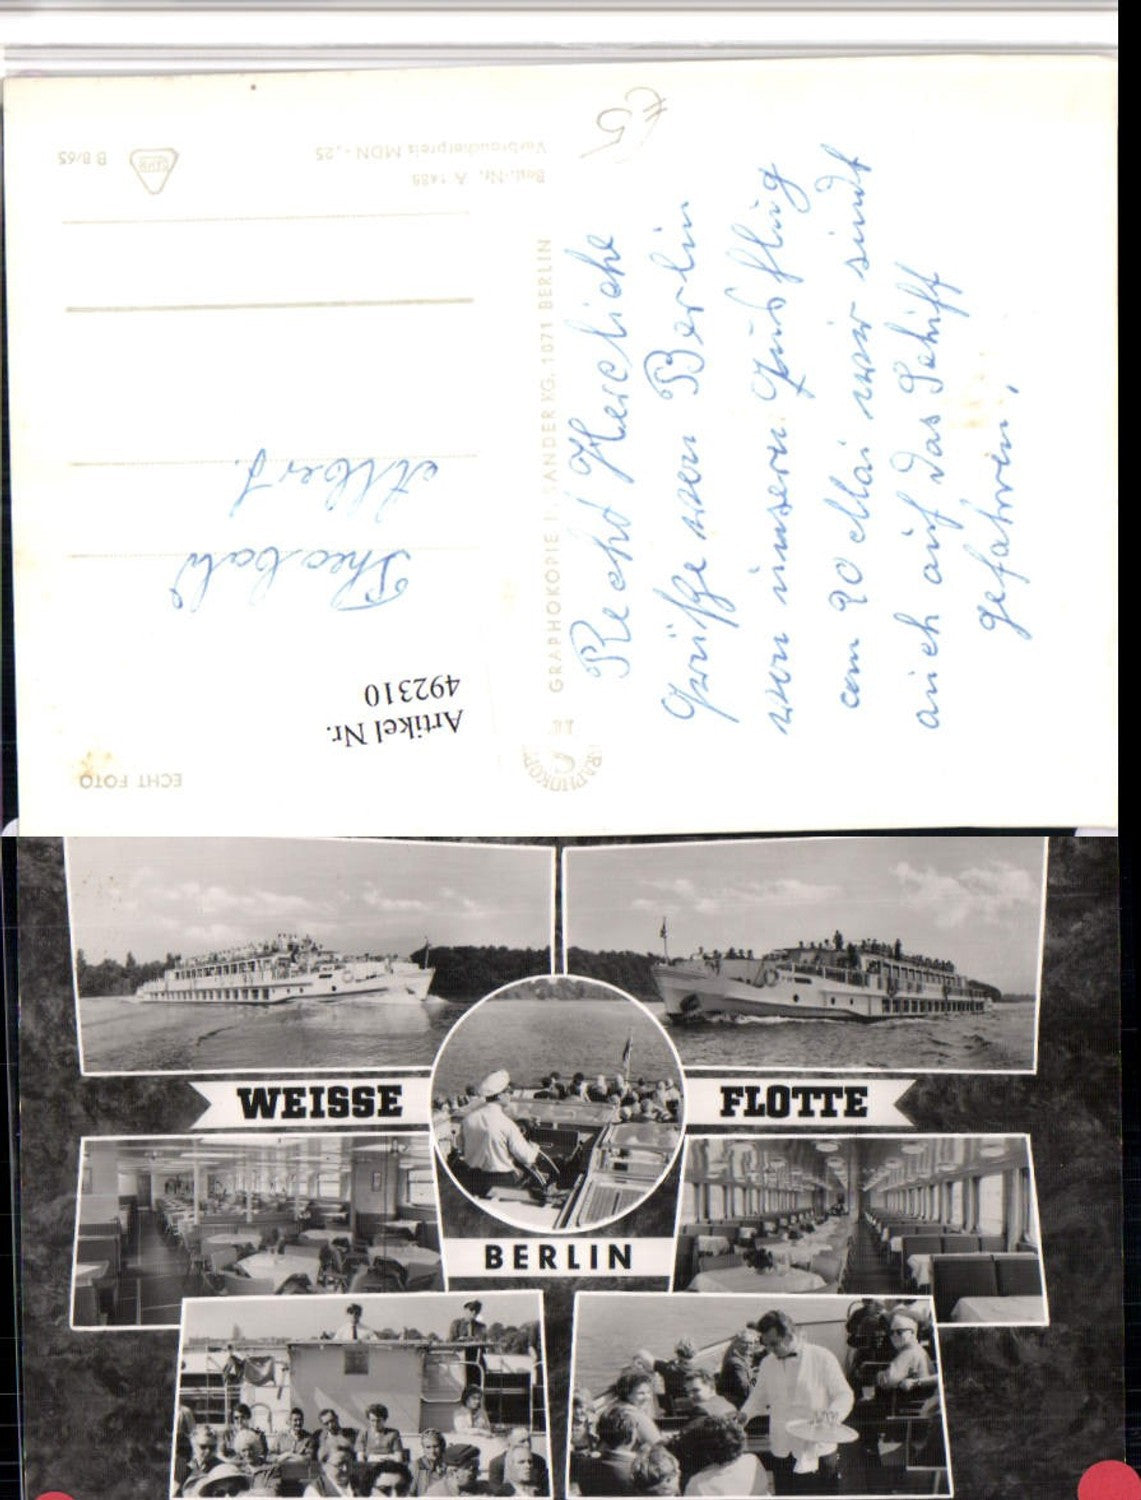 ECHT FOTO
Artikel Nr.
492310
Theobald
Albert.
Best.-Nr. A 1485
Verbraucherpreis MDN -,25
B 8/65
GRAPHOKOPIE H. SANDER KG, 1071 BERLIN
GRAPHOKOPIE
Recht Hercliche
Grüße von Berlin
von unsern Ausflug
am 20 Mai wir sindt
auch auf das Schiff
gefahren,
WEISSE
FLOTTE
BERLIN